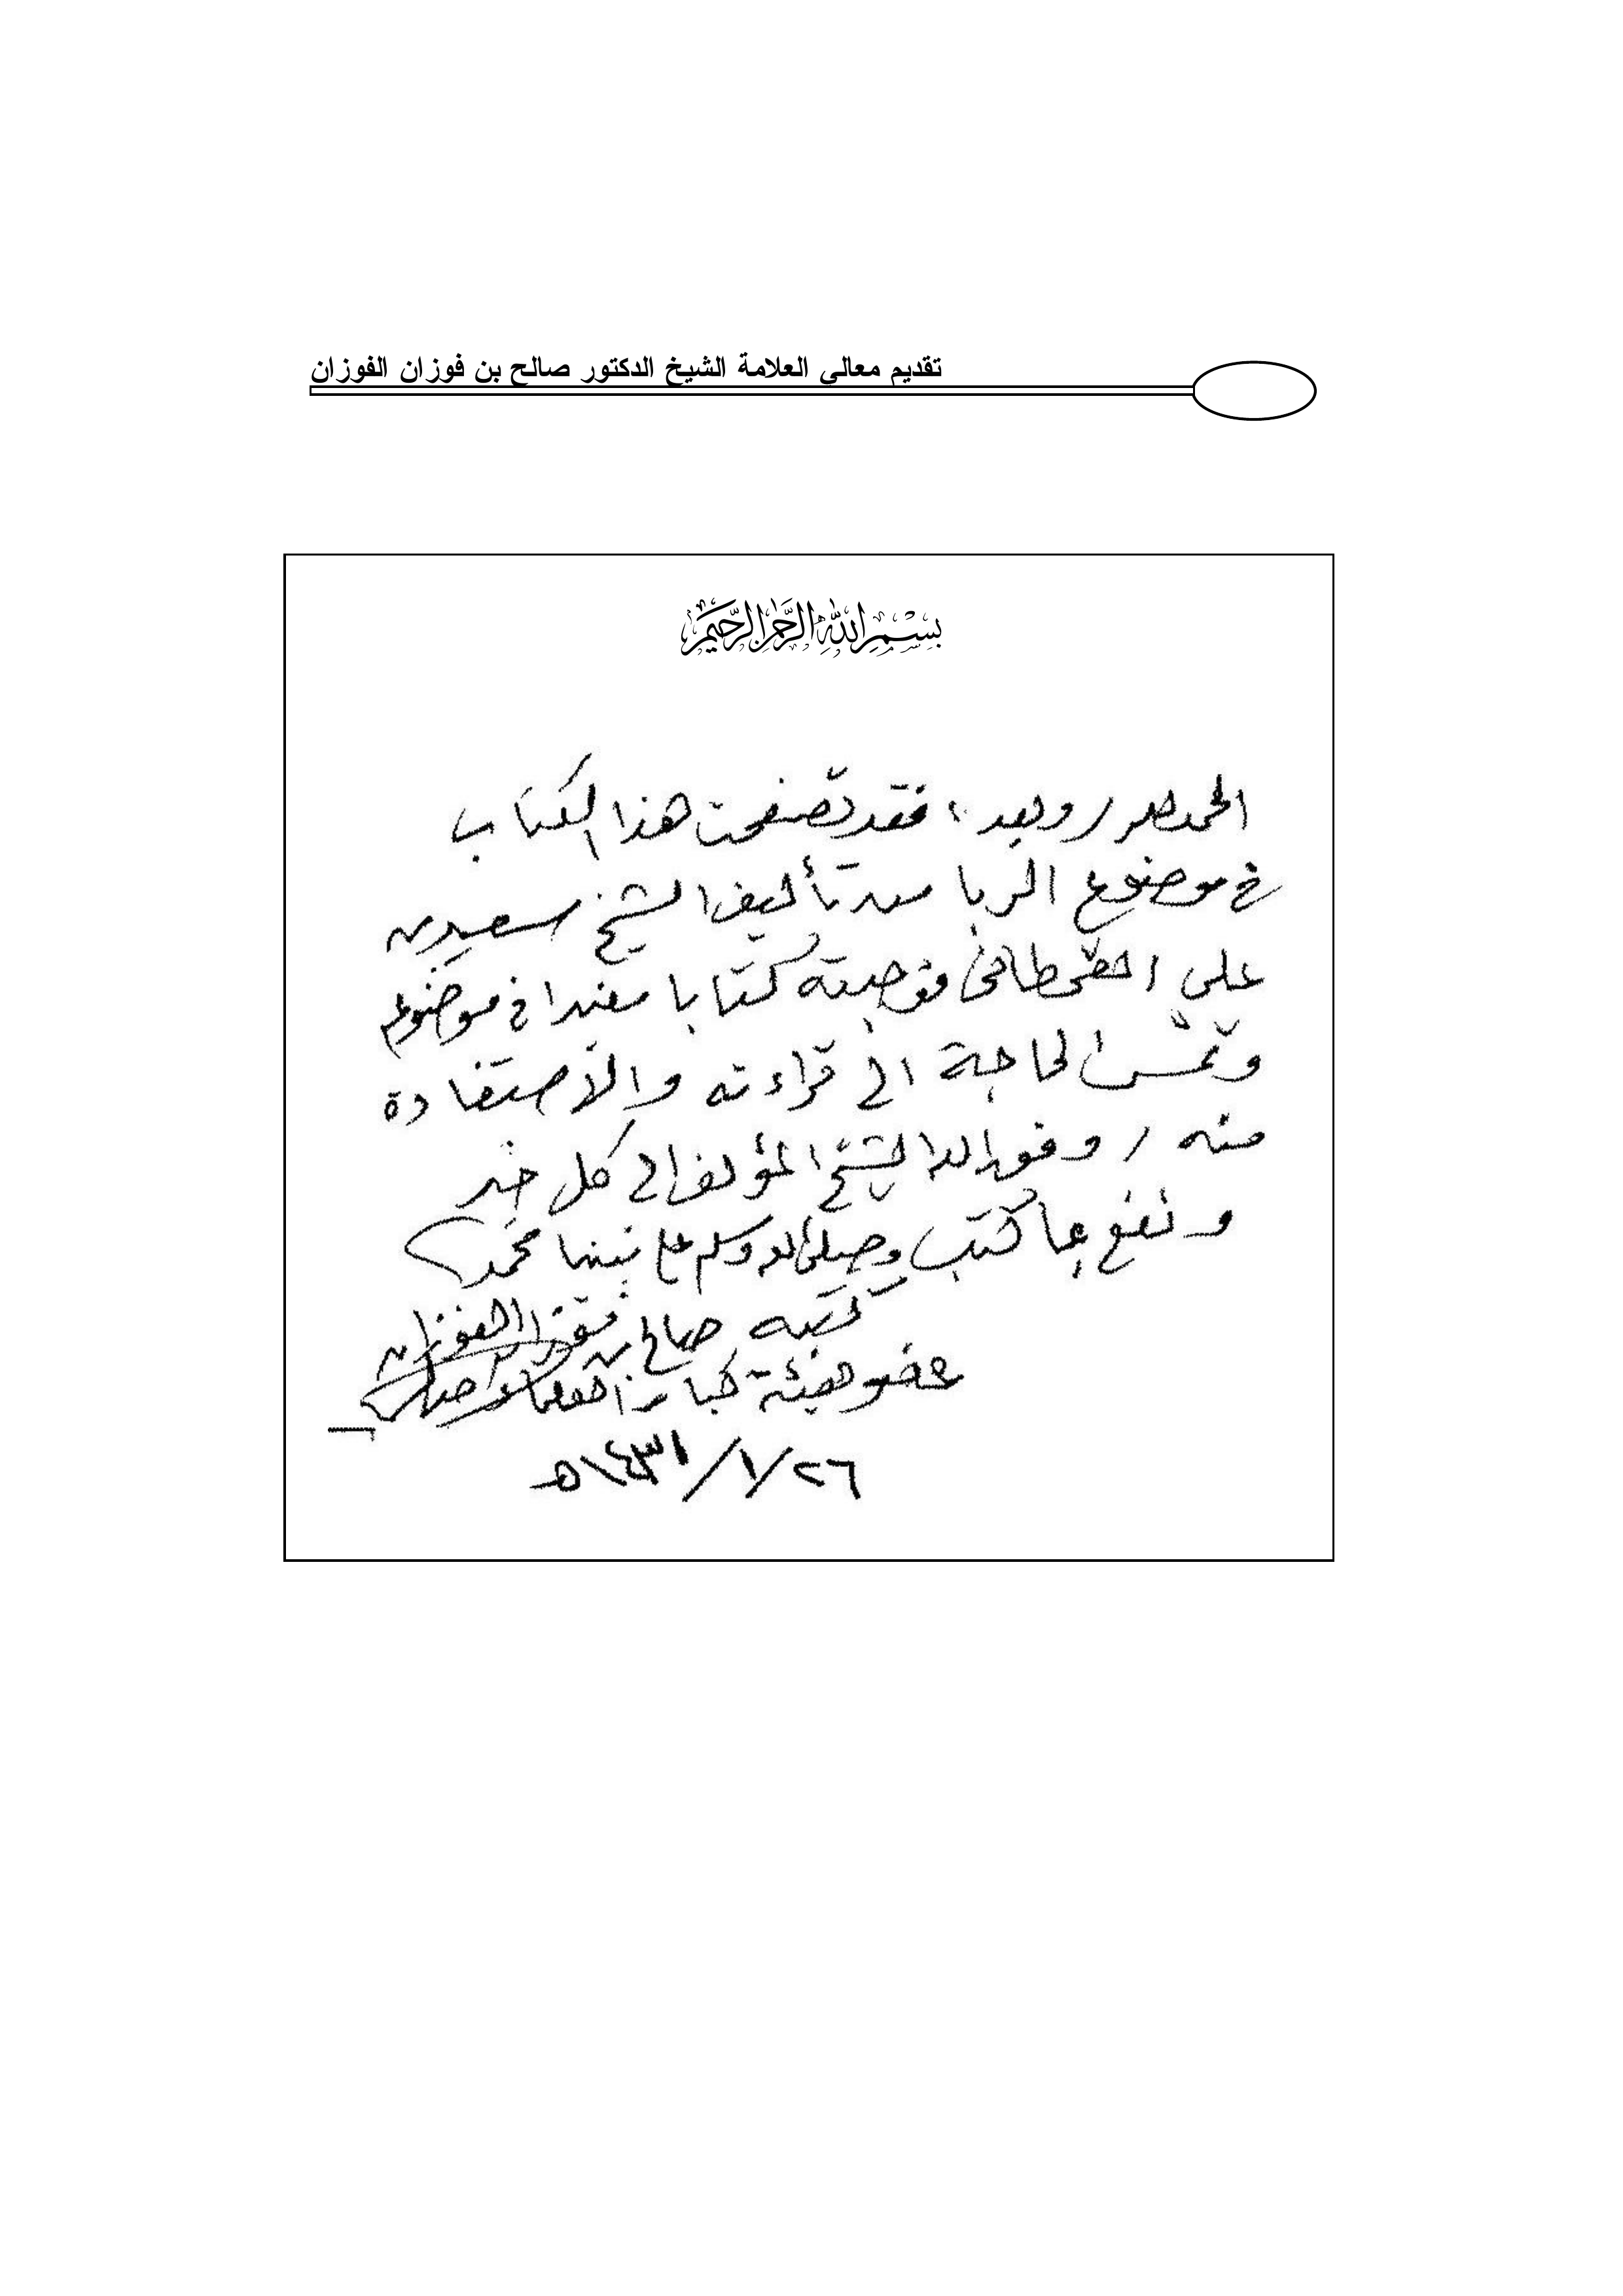 تقديم معالي العلامة الشيخ الدكتور صالح بن فوزان الفوزان
بسم الله الرحمن الرحيم
الحمد لله / وبعد، فقد تصفحت هذا الكتاب
في موضوع الربا من تأليف الشيخ سعيد بن
علي القحطاني فوجدته كتابا مفيدا في موضوعه
وتمس الحاجة إلى قراءته والاستفادة
منه / وفق الله الشيخ المؤلف إلى كل خير
ونفع بما كتب وصلى الله وسلم على نبينا محمد
كتبه صالح بن فوزان الفوزان
عضو هيئة كبار العلماء
٢٦/١/١٤٣١هـ